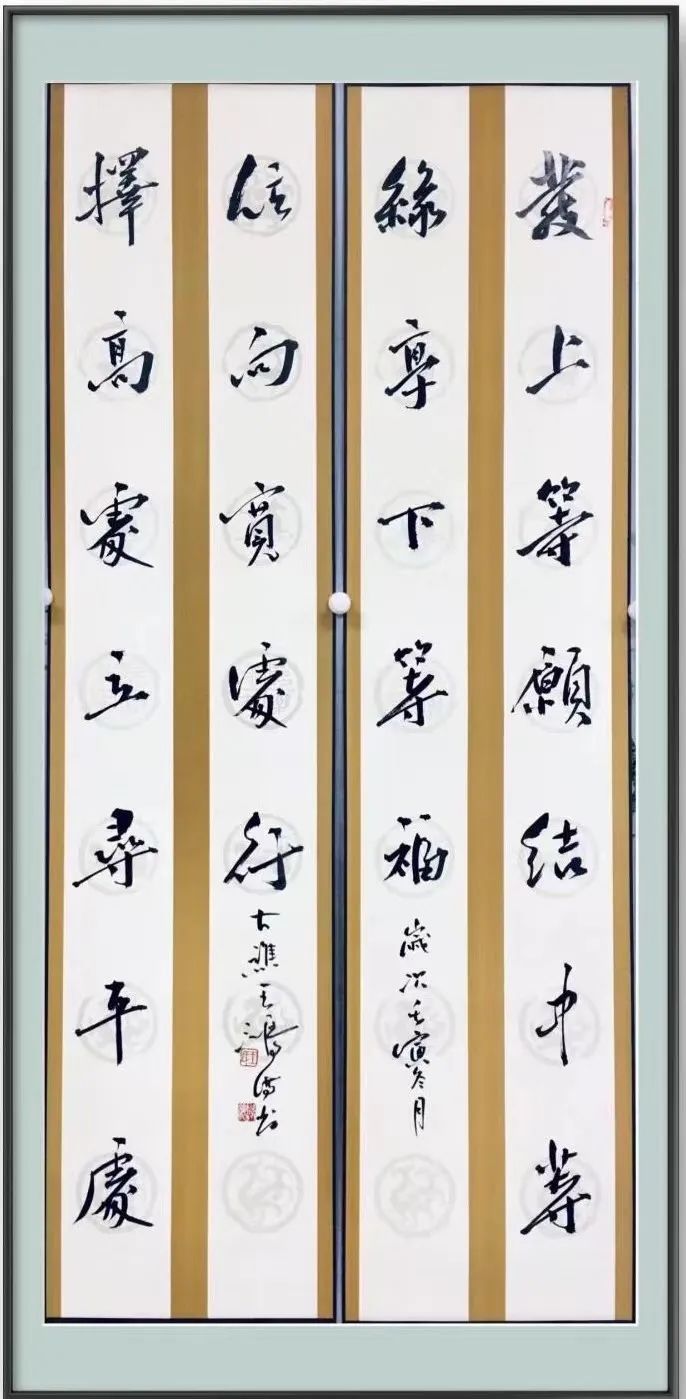 發上等願結中等
緣享下等福
歲次壬寅冬月
擇高處立尋平處
住向寬處行
古譙王鴻书